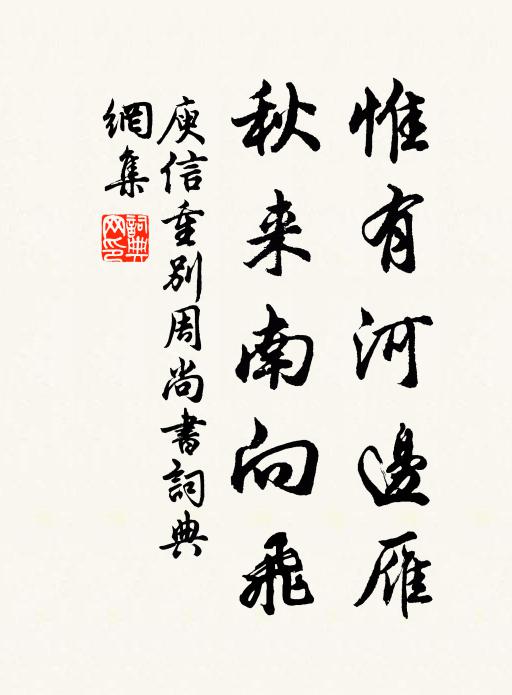 惟有河邊雁
秋来南向飛
庾信重别周尚書詞典
網集
詞典
网印